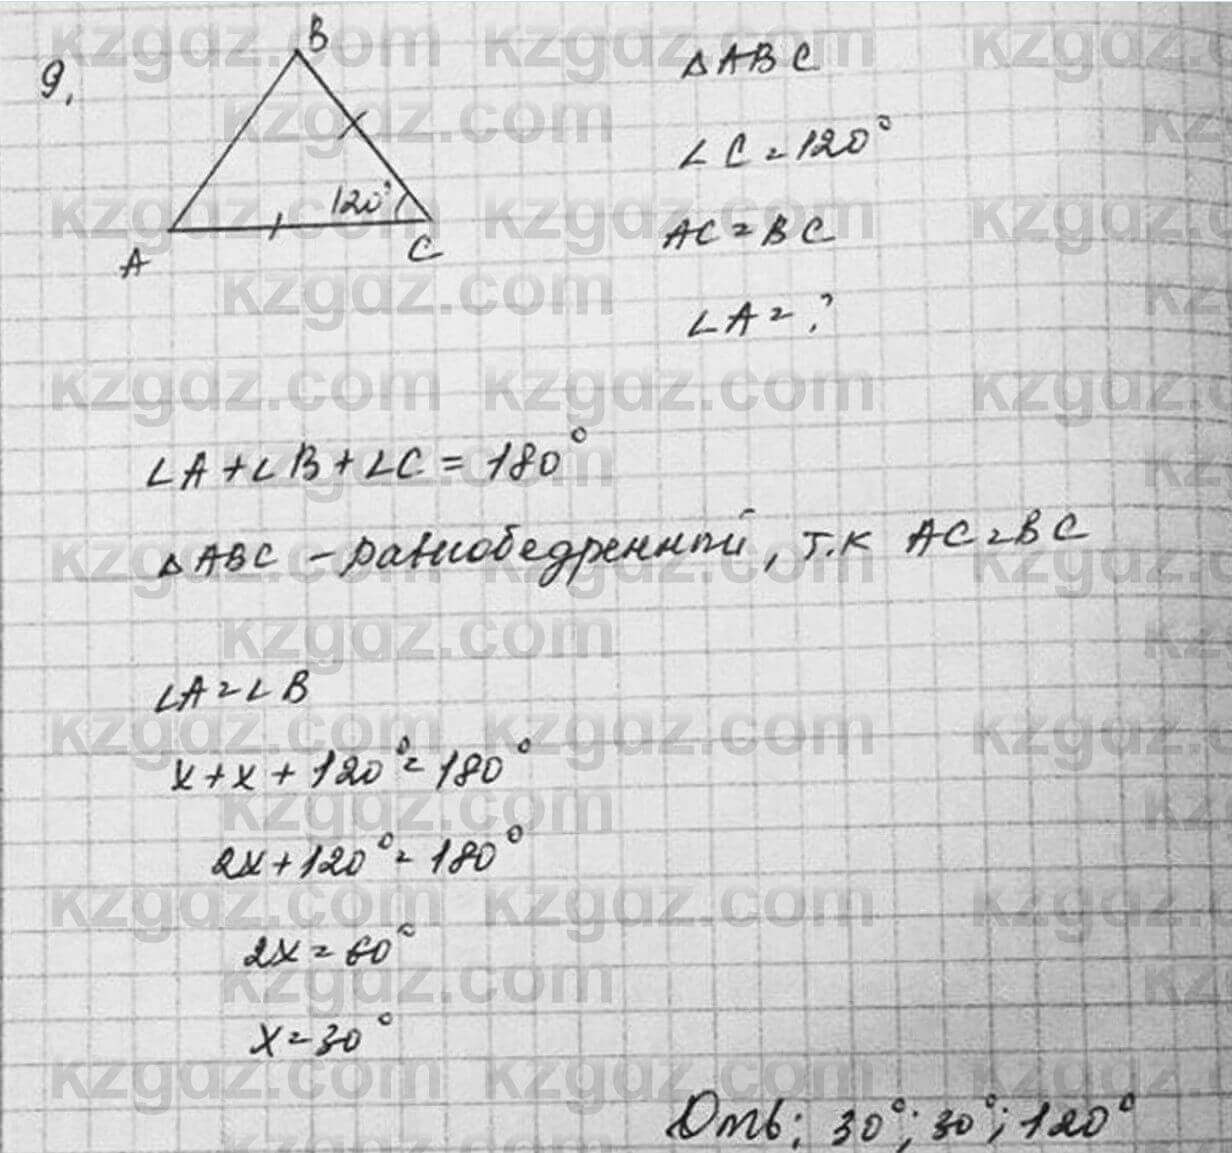 9.
B
120°
A
C
△ABC
∠C=120°
AC=BC
∠A=?
∠A+∠B+∠C=180°
△ABC – равнобедренный, т.к AC=BC
∠A=∠B
x+x+120°=180°
2x+120°=180°
2x=60°
x=30°
Отв: 30°; 30°; 120°
kzgdz.com